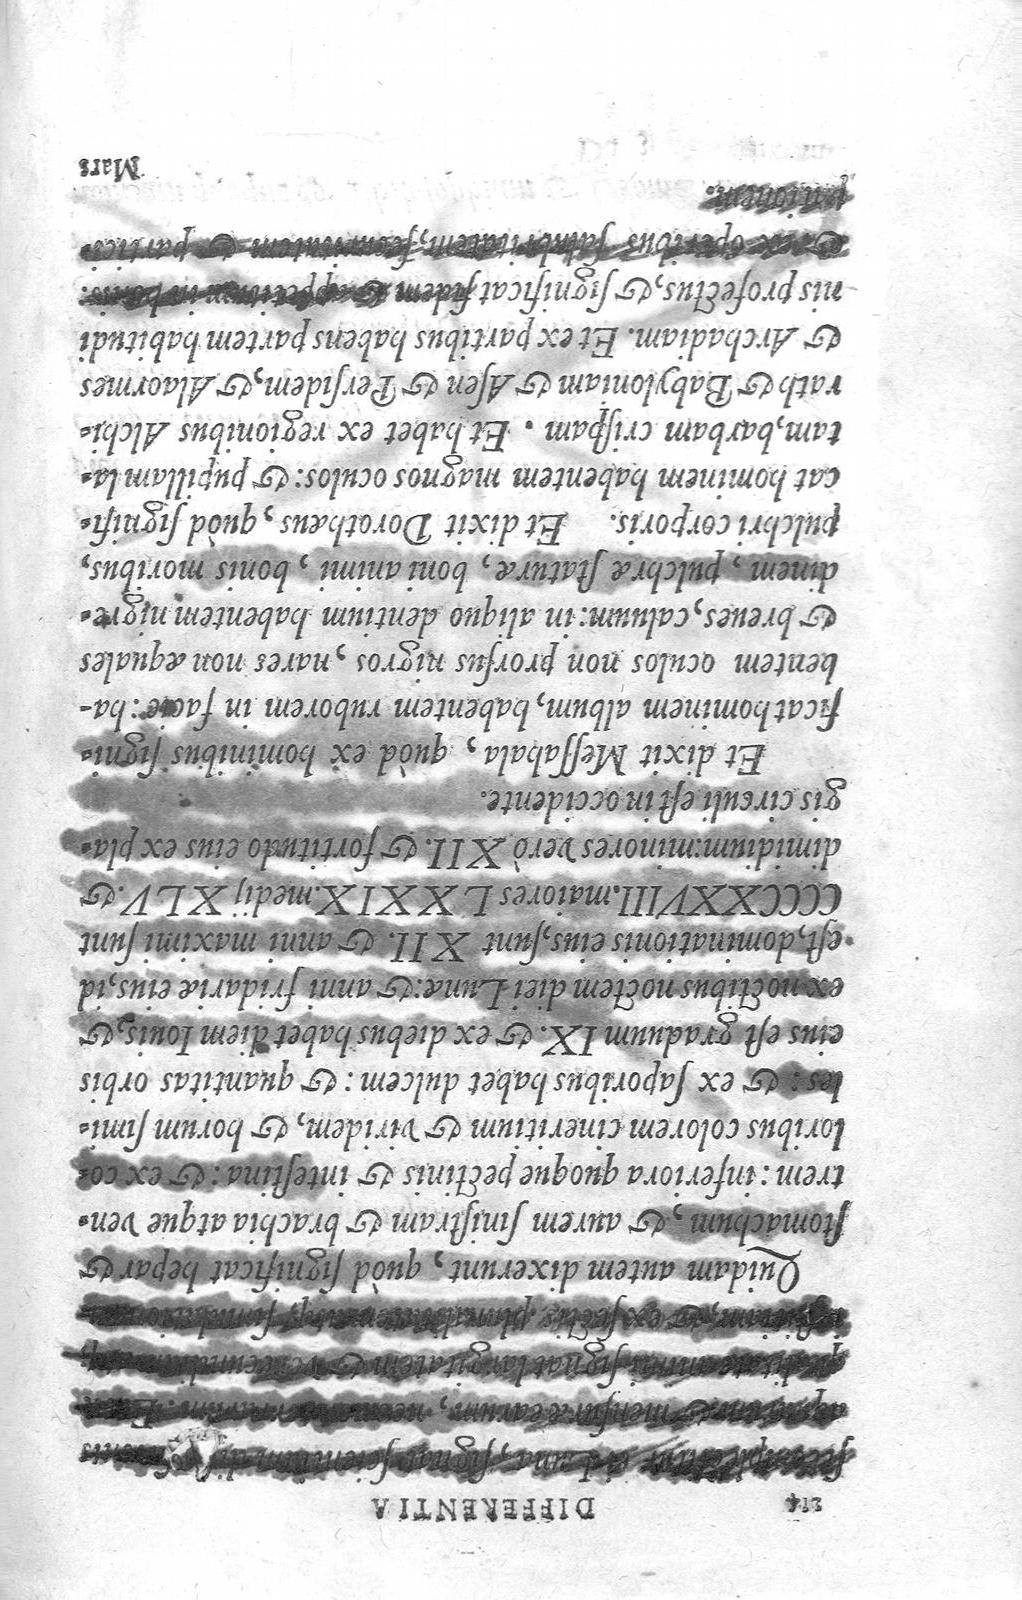 214 DIFFERENTIA
una, significat scientiam
mensuræ earum, nec non
animi, significat largitatem & verecundiam
& ex sectis
Quidam autem dixerunt, quòd significat hepar &
ſtomachum, & aurem ſiniſtram & brachia atque ven-
trem: inferiora quoque pectinis & inteſtina: & ex co-
loribus colorem cineritium & viridem, & horum ſimi-
les: & ex ſaporibus habet dulcem: & quantitas orbis
eius eſt graduum IX. & ex diebus habet diem Iouis, &
ex noctibus noctem diei Lunæ: & anni fridariæ eius, id
eſt, dominationis eius, ſunt XII. & anni maximi ſunt
CCCCXXVIII. maiores LXXIX. medij XLV. &
dimidium: minores verò XII. & fortitudo eius ex pla-
gis circuli eſt in occidente.
Et dixit Meſſahala, quòd ex hominibus ſigni-
ficat hominem album, habentem ruborem in facie: ha-
bentem oculos non prorſus nigros, nares non æquales
& breues, caluum: in aliquo dentium habentem nigre-
dinem, pulchræ ſtaturæ, boni animi, bonis moribus,
pulchri corporis. Et dixit Dorothæus, quòd ſignifi-
cat hominem habentem magnos oculos: & pupillam la-
tam, barbam criſpam. Et habet ex regionibus Alchi-
rath & Babyloniam & Aſen & Perſidem, & Alaormes
& Archadiam. Et ex partibus habens partem habitudi
nis profectus, & ſignificat fidem & appetitum in bonis:
& ex operibus ſalubritatem, ſecuritatem & partici-
pationem.
Mars